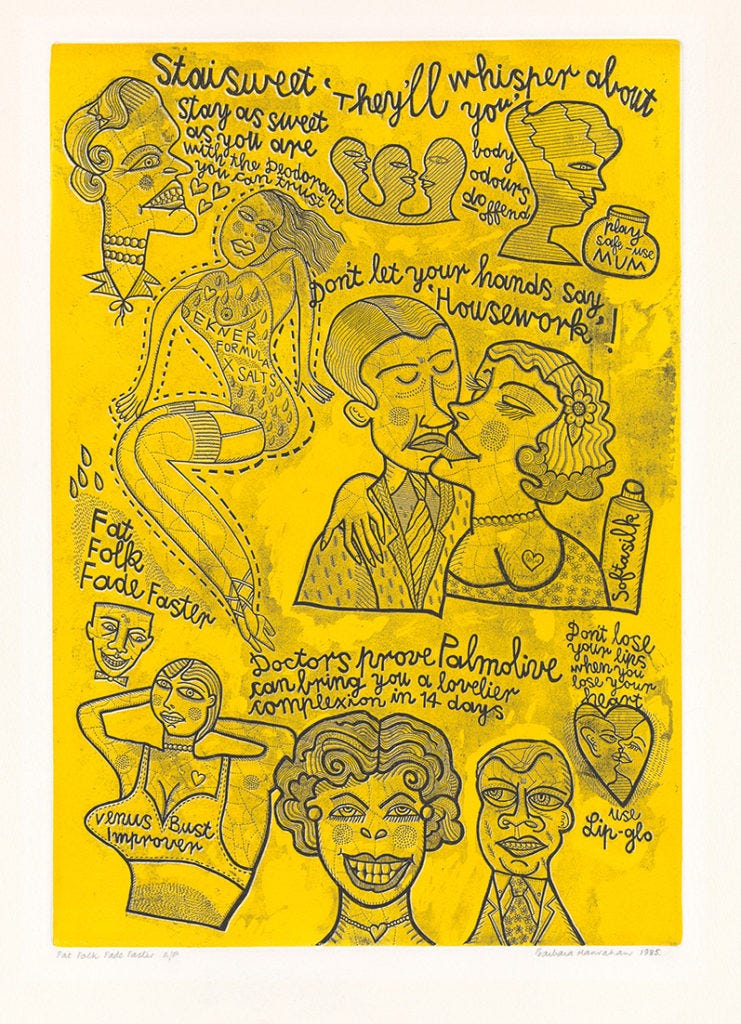 Staisweet
stay as sweet
as you are
with the Deodorant
you can trust
'They'll whisper about
you'
body
odours
do
offend
play
safe-use
MUM
Don't let your hands say,
'Housework'!
EKNER
FORMULA
X SALTS
Softasilk
Fat
Folk
Fade Faster
Doctors prove Palmolive
can bring you a lovelier
complexion in 14 days
Don't lose
your lips
when you
lose your
heart
use
Lip-glo
Venus Bust
Improver
Fat Folk Fade Faster A/P
Barbara Hanrahan 1985